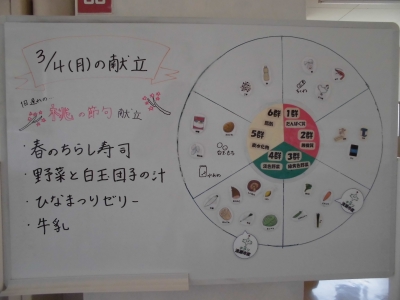 3/4(月)の献立
桃の節句 献立
・春のちらし寿司
・野菜と白玉団子の汁
・ひなまつりゼリー
・牛乳
6群
1群
たんぱく質
5群
2群
4群
3群